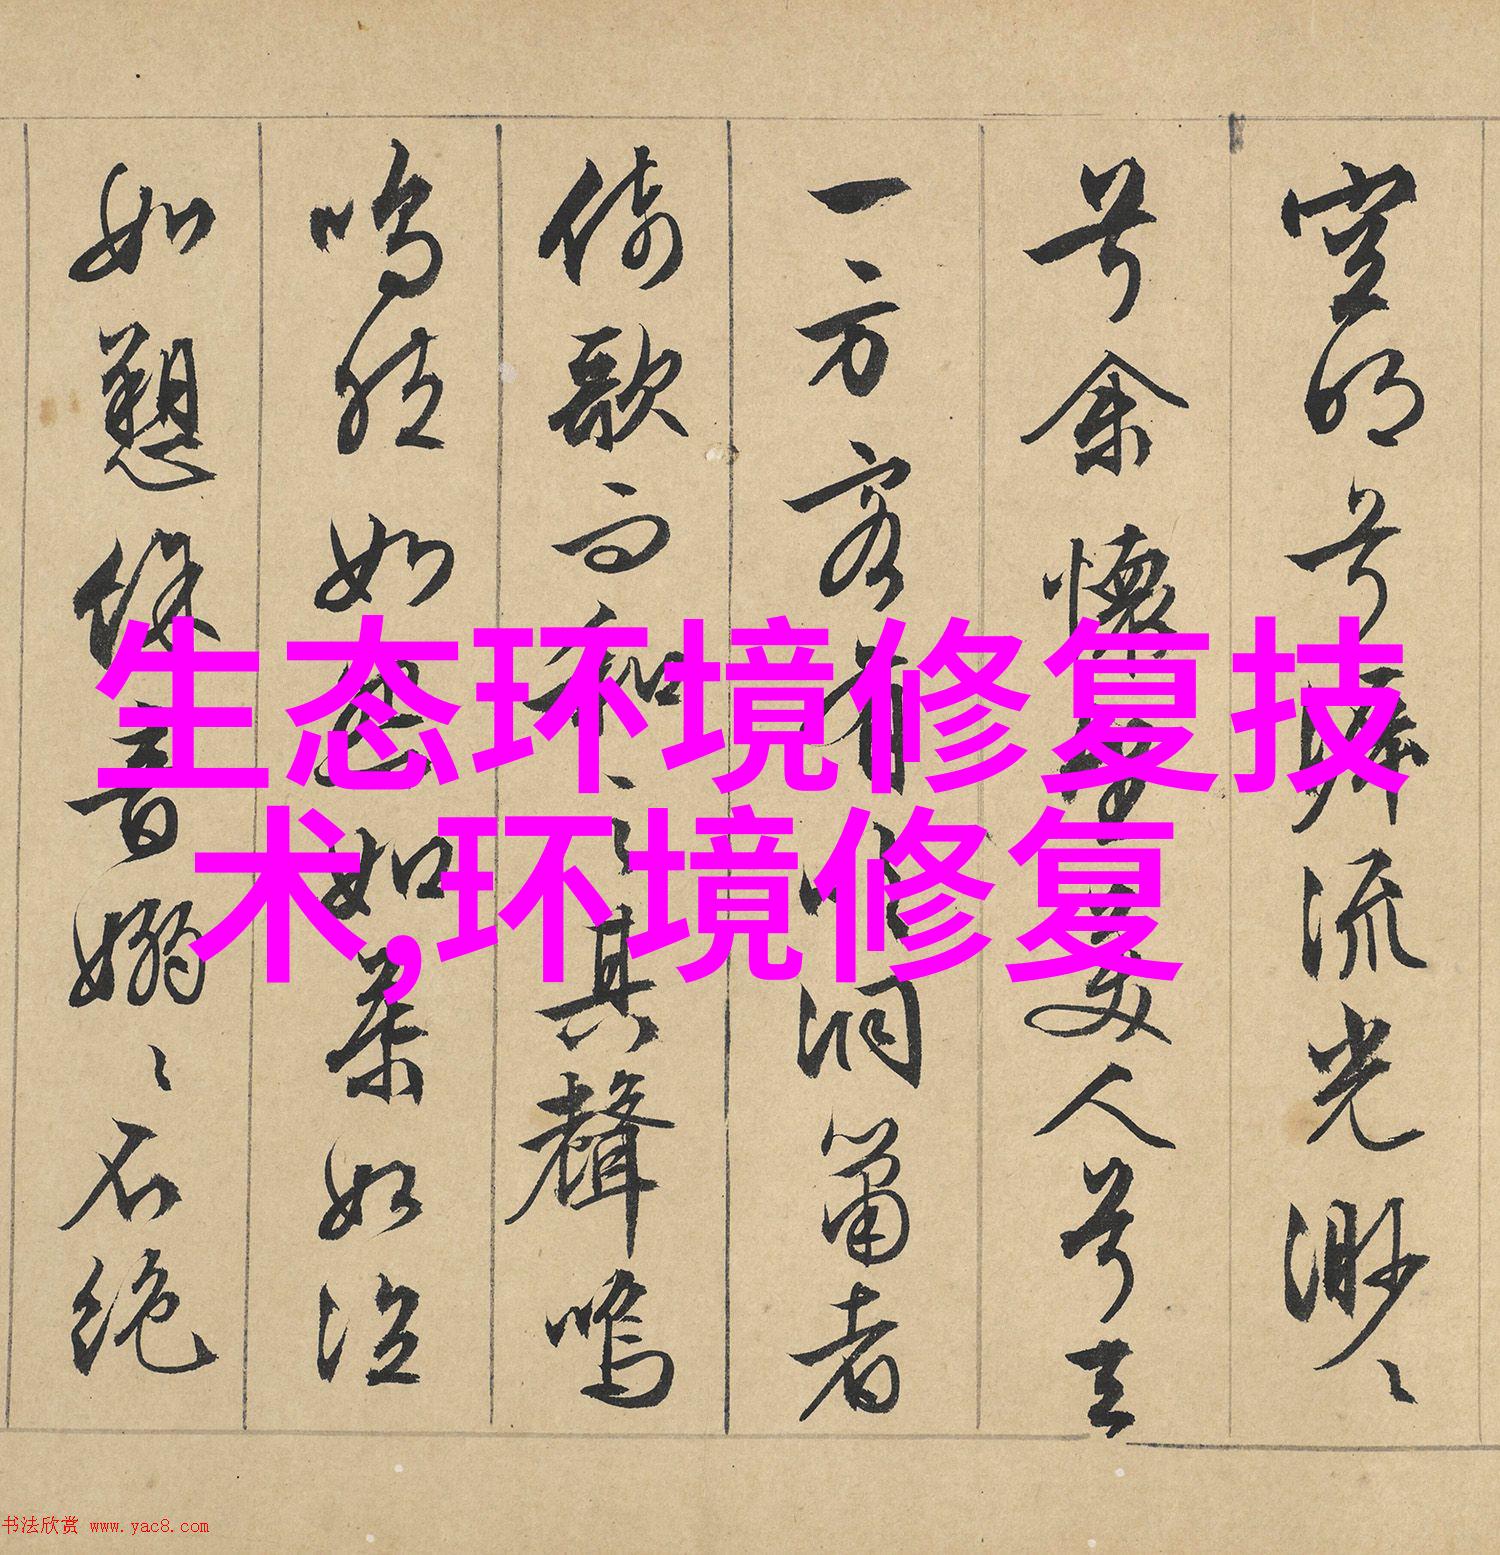 空明兮流光渺〻
兮余懷望美人兮天
一方客有吹洞簫者
倚歌而和之其聲嗚
嗚然如怨如慕如泣
如愬餘音嫋〻不絕
生态环境修复技
术,环境修复
书法欣赏 www.yac8.com